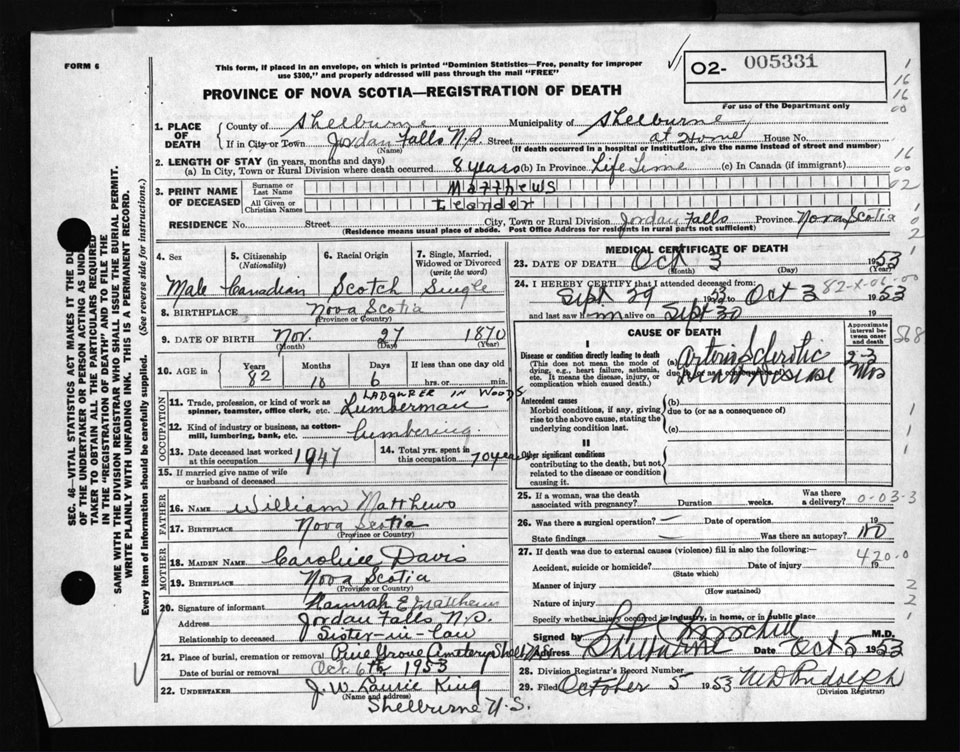 FORM 6
This form, if placed in an envelope, on which is printed "Dominion Statistics—Free, penalty for improper
use $300," and properly addressed will pass through the mail "FREE"
PROVINCE OF NOVA SCOTIA—REGISTRATION OF DEATH
O2- 005331
For use of the Department only
1. PLACE OF DEATH
County of Shelburne Municipality of Shelburne
If in City or Town Jordan Falls N.S. Street at Home House No.
(Name) (If death occurred in a hospital or institution, give the name instead of street and number)
2. LENGTH OF STAY (in years, months and days)
(a) In City, Town or Rural Division where death occurred 8 years (b) In Province Life Time (c) In Canada (if immigrant)
3. PRINT NAME OF DECEASED
Surname or Last Name Matthews
All Given or Christian Names Leander
RESIDENCE No. Street City, Town or Rural Division Jordan Falls Province Nova Scotia
(Residence means usual place of abode. Post Office Address for residents in rural parts not sufficient)
4. Sex Male
5. Citizenship (Nationality) Canadian
6. Racial Origin Scotch
7. Single, Married, Widowed or Divorced (write the word) Single
8. BIRTHPLACE Nova Scotia
(Province or Country)
9. DATE OF BIRTH Nov. 27 1870
(Month) (Day) (Year)
10. AGE in Years 82 Months 10 Days 6 If less than one day old hrs. or min.
OCCUPATION
11. Trade, profession, or kind of work as spinner, teamster, office clerk, etc. LABOURER IN WOODS Lumberman
12. Kind of industry or business, as cotton-mill, lumbering, bank, etc. Lumbering.
13. Date deceased last worked at this occupation 1947
14. Total yrs. spent in this occupation 70 years
15. If married give name of wife or husband of deceased
FATHER
16. NAME William Matthews
17. BIRTHPLACE Nova Scotia
(Province or Country)
MOTHER
18. MAIDEN NAME Caroline Davis
19. BIRTHPLACE Nova Scotia
(Province or Country)
20. Signature of informant Hannah E Matthews
Address Jordan Falls N.S.
Relationship to deceased Sister-in-law
21. Place of burial, cremation or removal Pine Grove Cemetery
Date of burial or removal Oct. 6th 1953
22. UNDERTAKER J. W. Laurie King
(Name and address)
Shelburne N.S.
MEDICAL CERTIFICATE OF DEATH
23. DATE OF DEATH Oct 3 1953
(Month) (Day) (Year)
24. I HEREBY CERTIFY that I attended deceased from:
Sept 29 1953 Oct 3 1953
and last saw him alive on Sept 30
CAUSE OF DEATH
Approximate interval between onset and death
I
Disease or condition directly leading to death
(This does not mean the mode of dying, e.g., heart failure, asthenia, etc. It means the disease, injury, or complication which caused death.)
(a) Arteriosclerotic Heart Disease 2-3
due to (or as a consequence of)
Antecedent causes
Morbid conditions, if any, giving rise to the above cause, stating the underlying condition last.
(b)
due to (or as a consequence of)
(c)
II
Other significant conditions
contributing to the death, but not related to the disease or condition causing it.
25. If a woman, was the death associated with pregnancy? Duration weeks. Was there a delivery? 0-03-3
26. Was there a surgical operation? — Date of operation 19
State findings — Was there an autopsy? No
27. If death was due to external causes (violence) fill in also the following:— 420-0
Accident, suicide or homicide? Date of injury 19
(State which)
Manner of injury
(How sustained)
Nature of injury
Specify whether injury occurred in industry, in home, or in public place
Signed by M.D.
Address Shelburne Date Oct 5 1953
28. Division Registrar's Record Number
29. Filed October 5 1953
(Division Registrar)
SEC. 46—VITAL STATISTICS ACT MAKES IT THE DUTY
OF THE UNDERTAKER OR PERSON ACTING AS UNDER-
TAKER TO OBTAIN ALL THE PARTICULARS REQUIRED
IN THE "REGISTRATION OF DEATH" AND TO FILE THE
SAME WITH THE DIVISION REGISTRAR WHO SHALL ISSUE THE BURIAL PERMIT.
WRITE PLAINLY WITH UNFADING INK. THIS IS A PERMANENT RECORD.
Every item of information should be carefully supplied. (See reverse side for instructions.)